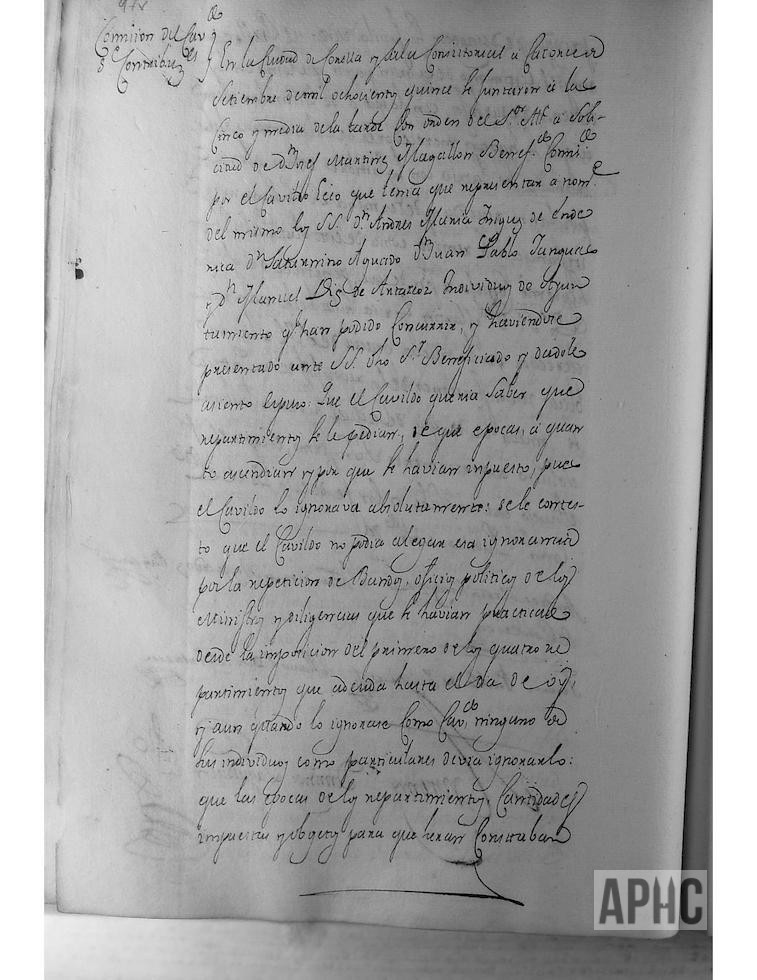 Comision del Cavdo
s.e Contribuz.es
En la Ciudad de Corella y Sala Consistorial a Catorce de
Setiembre de mil ochocientos quince se juntaron a las
Cinco y media de la tarde con orden del S.or Alc a Soli-
citud de Dn Josef Martinez Magallon Benef.do Comis.do
por el Cavildo Ecco que tenia que representar a nomē
del mismo los SS. Dn. Andres Maria Iñiguez de
Dn. Saturnino Aguado Dn Juan Pablo
y Dn. Manuel Diz de Antañon Individuos de Ayun
tamiento q.e han podido Concurrir, y haviendose
presentado ante SS. dho Sr. Beneficiado y dadole
asiento espuso: Que el Cavildo queria Saber, que
repartimientos se le pedian, de que epocas, a quan
to ascendian y por que se havian inpuesto, pues
el Cavildo lo ignorava absolutamente: se le contes-
to que el Cavildo no podia alegar esa ignorancia
por la repeticion de Bandos, oficios politicos de los
Ministros y diligencias que se havian practicado
desde la imposicion del primero de los quatro re
partimientos que adeuda hasta el dia de oy,
y aun quando lo ignorase Como Cav.do ninguno de
sus individuos como particulares devia ignorarlo:
que las epocas de los repartimientos, Cantidades
impuestas y obgetos para que heran Constaban
APHC